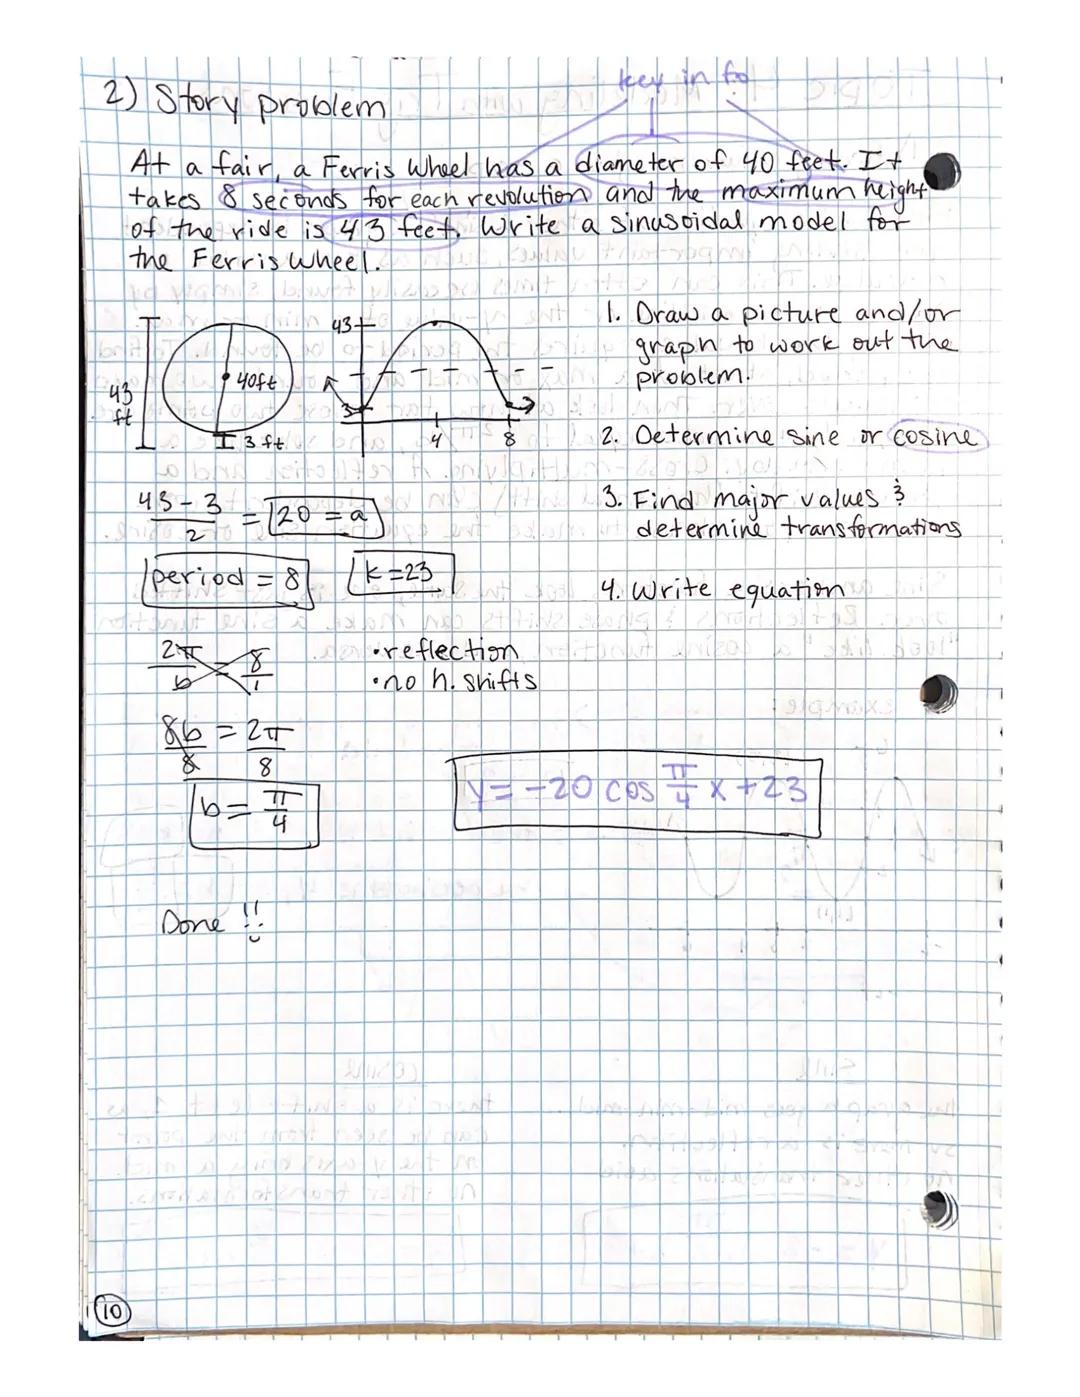 key info
2) Story problem
At a fair, a Ferris Wheel has a diameter of 40 feet. It
takes 8 seconds for each revolution and the maximum height
of the ride is 43 feet. Write a sinusoidal model for
the Ferris Wheel.
43 ft
40ft
3 ft
43
3
4
8
1. Draw a picture and/or
graph to work out the
problem.
2. Determine sine or cosine
3. Find major values &
determine transformations
4. Write equation
43-3/2 = 20 = a
period = 8
k=23
2π/b = 8/1
• reflection
• no h. shifts
8b/8 = 2π/8
b = π/4
y = -20 cos π/4 x + 23
Done !!
10